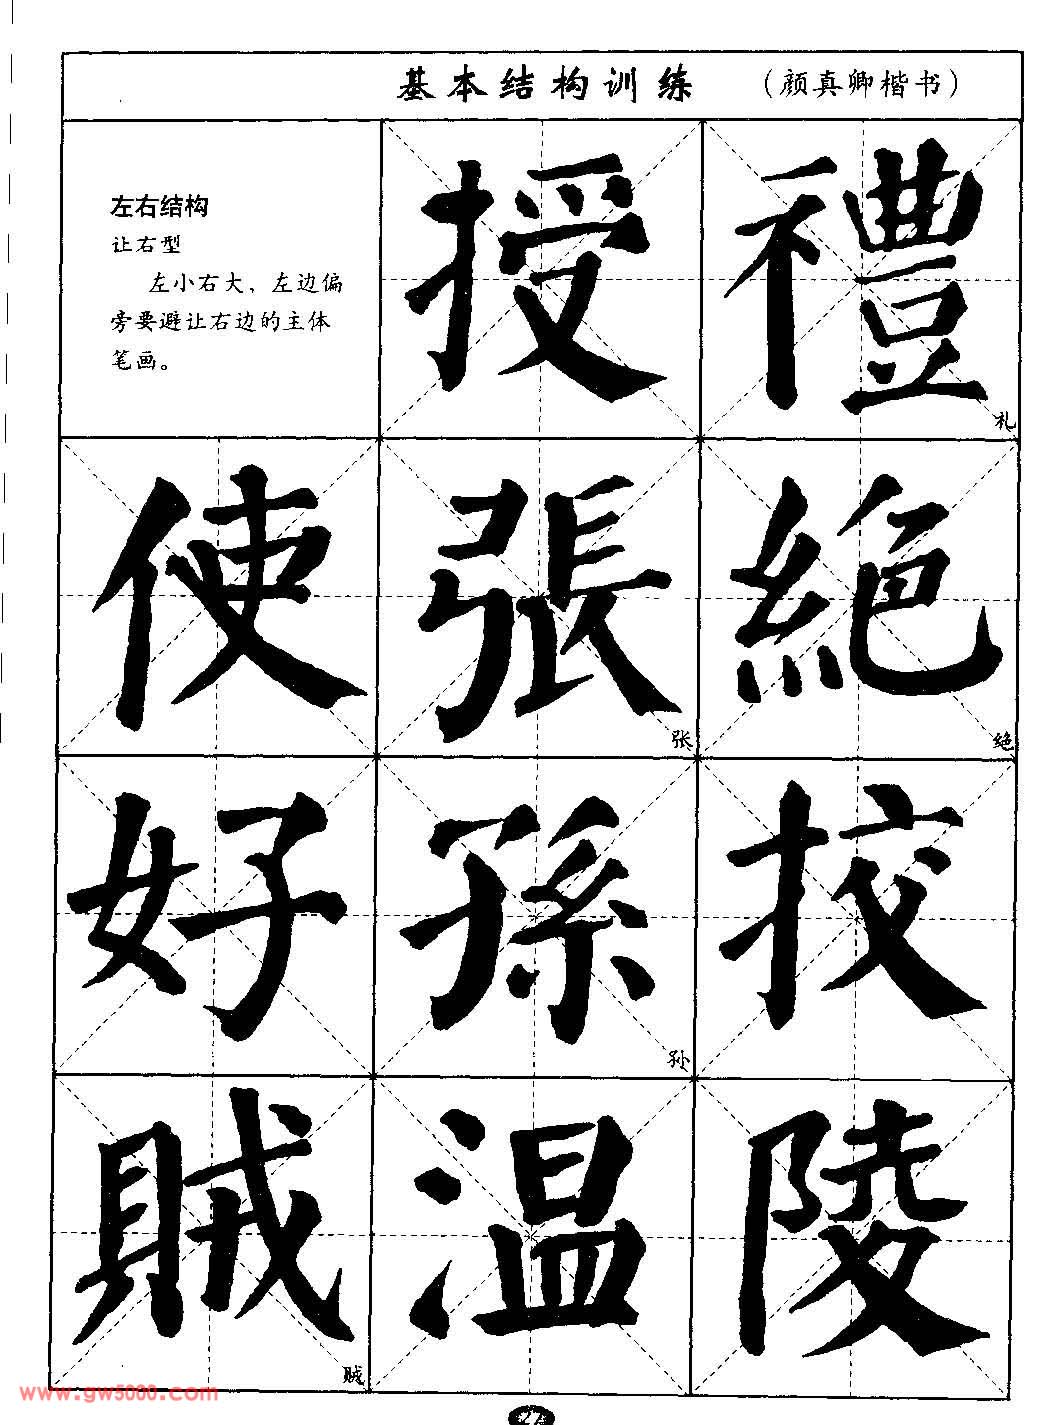 基本结构训练 （颜真卿楷书）
左右结构
让右型
左小右大，左边偏
旁要避让右边的主体
笔画。
授 禮 礼
使 張 张 絕 绝
好 孫 孙 挍
賊 贼 温 陵
www.gw5000.com
27